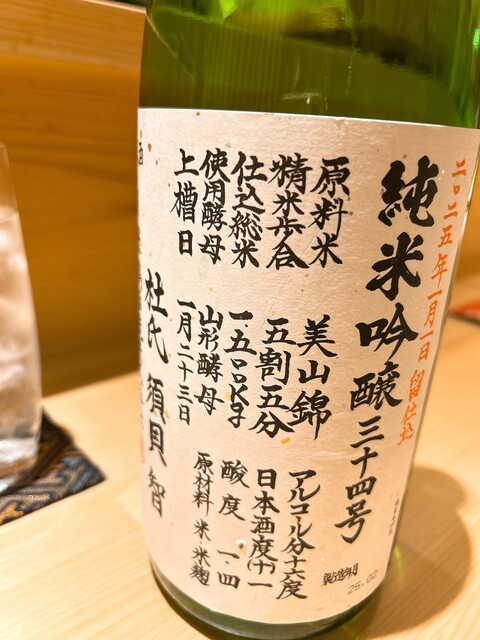 二〇二五年一月一日 留仕込
純米吟醸三十四号
原料米 美山錦
精米歩合 五割五分
仕込総米 一、五〇〇Kg
使用酵母 山形酵母
上槽日 一月二十三日
アルコール分十六度
日本酒度(十)一
酸度 一.四
原材料 米 米麹
製造年月
25.02
杜氏 須貝 智
酒